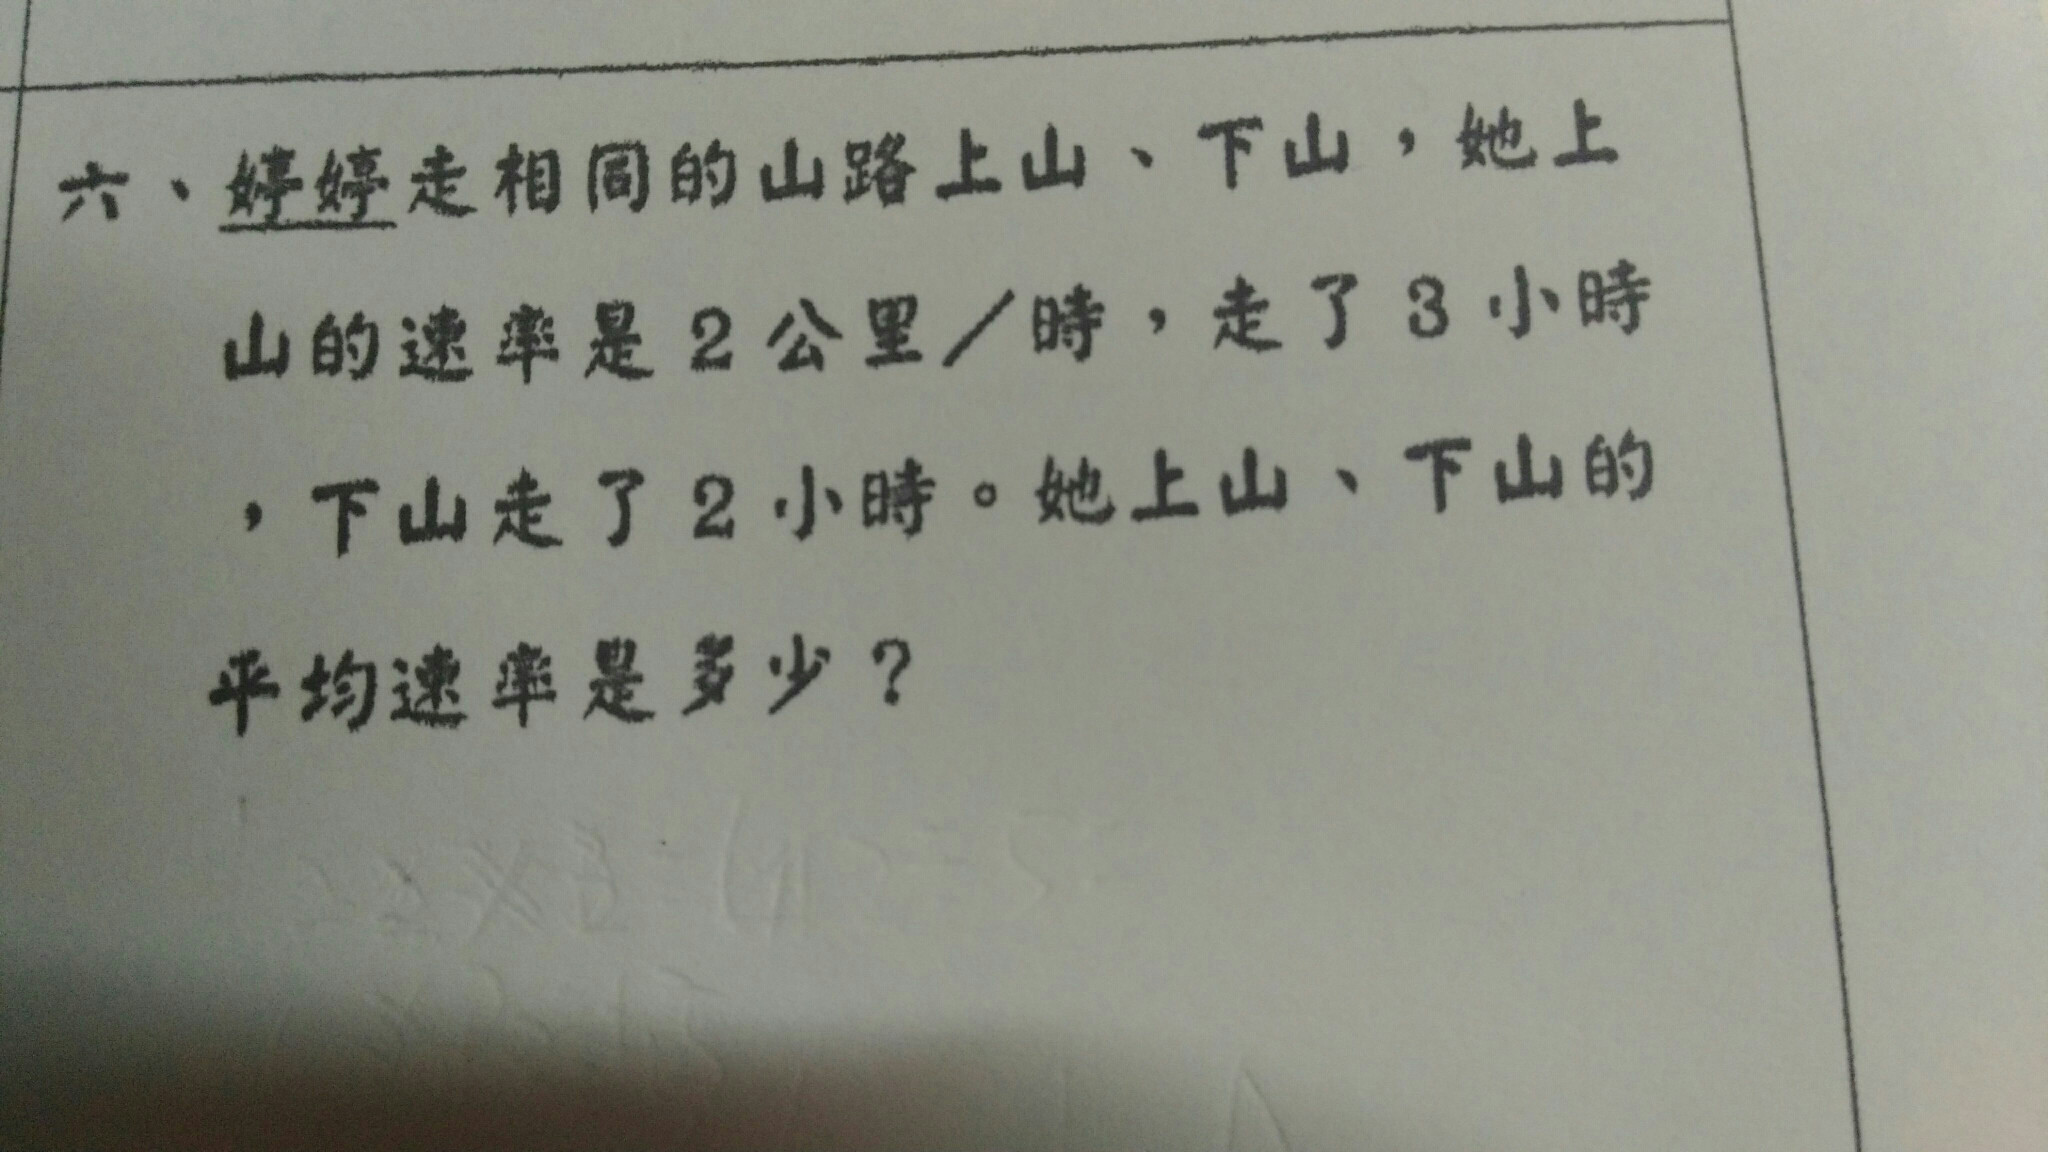 六、婷婷走相同的山路上山、下山，她上
山的速率是2公里／時，走了3小時
，下山走了2小時。她上山、下山的
平均速率是多少？